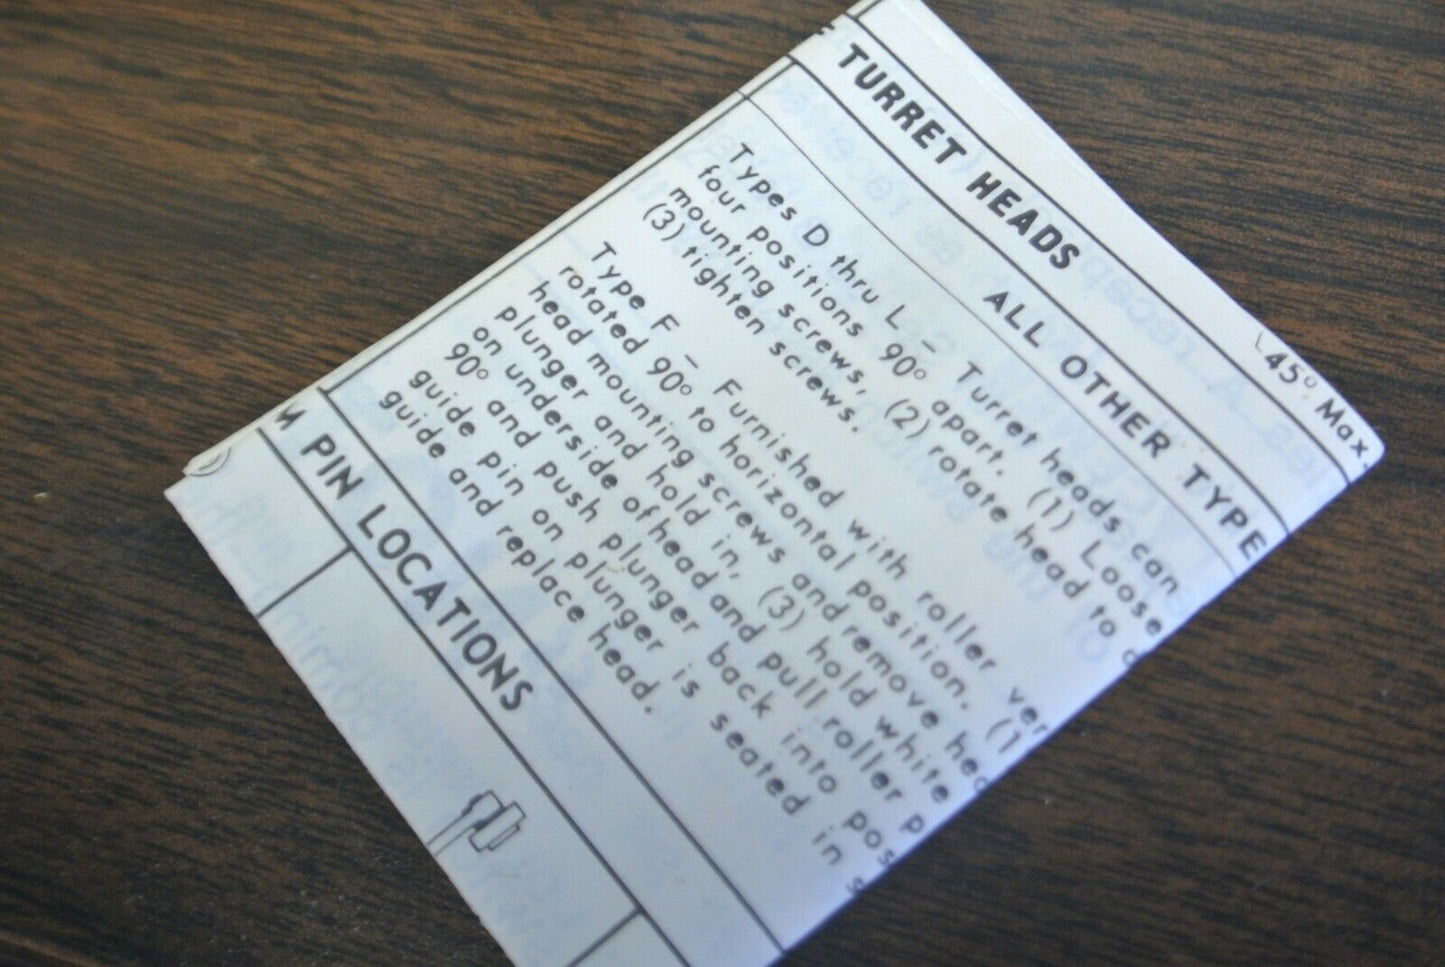 TURRET HEADS
45° Max.
ALL OTHER TYPE
Types D thru L — Turret heads can
four positions 90° apart. (1) Loose
mounting screws, (2) rotate head to
(3) tighten screws.
Type F — Furnished with roller ver
rotated 90° to horizontal position. (1
head mounting screws and remove hea
plunger and hold in, (3) hold white
on underside of head and pull roller p
90° and push plunger back into pos
guide pin on plunger is seated in s
guide and replace head.
M PIN LOCATIONS